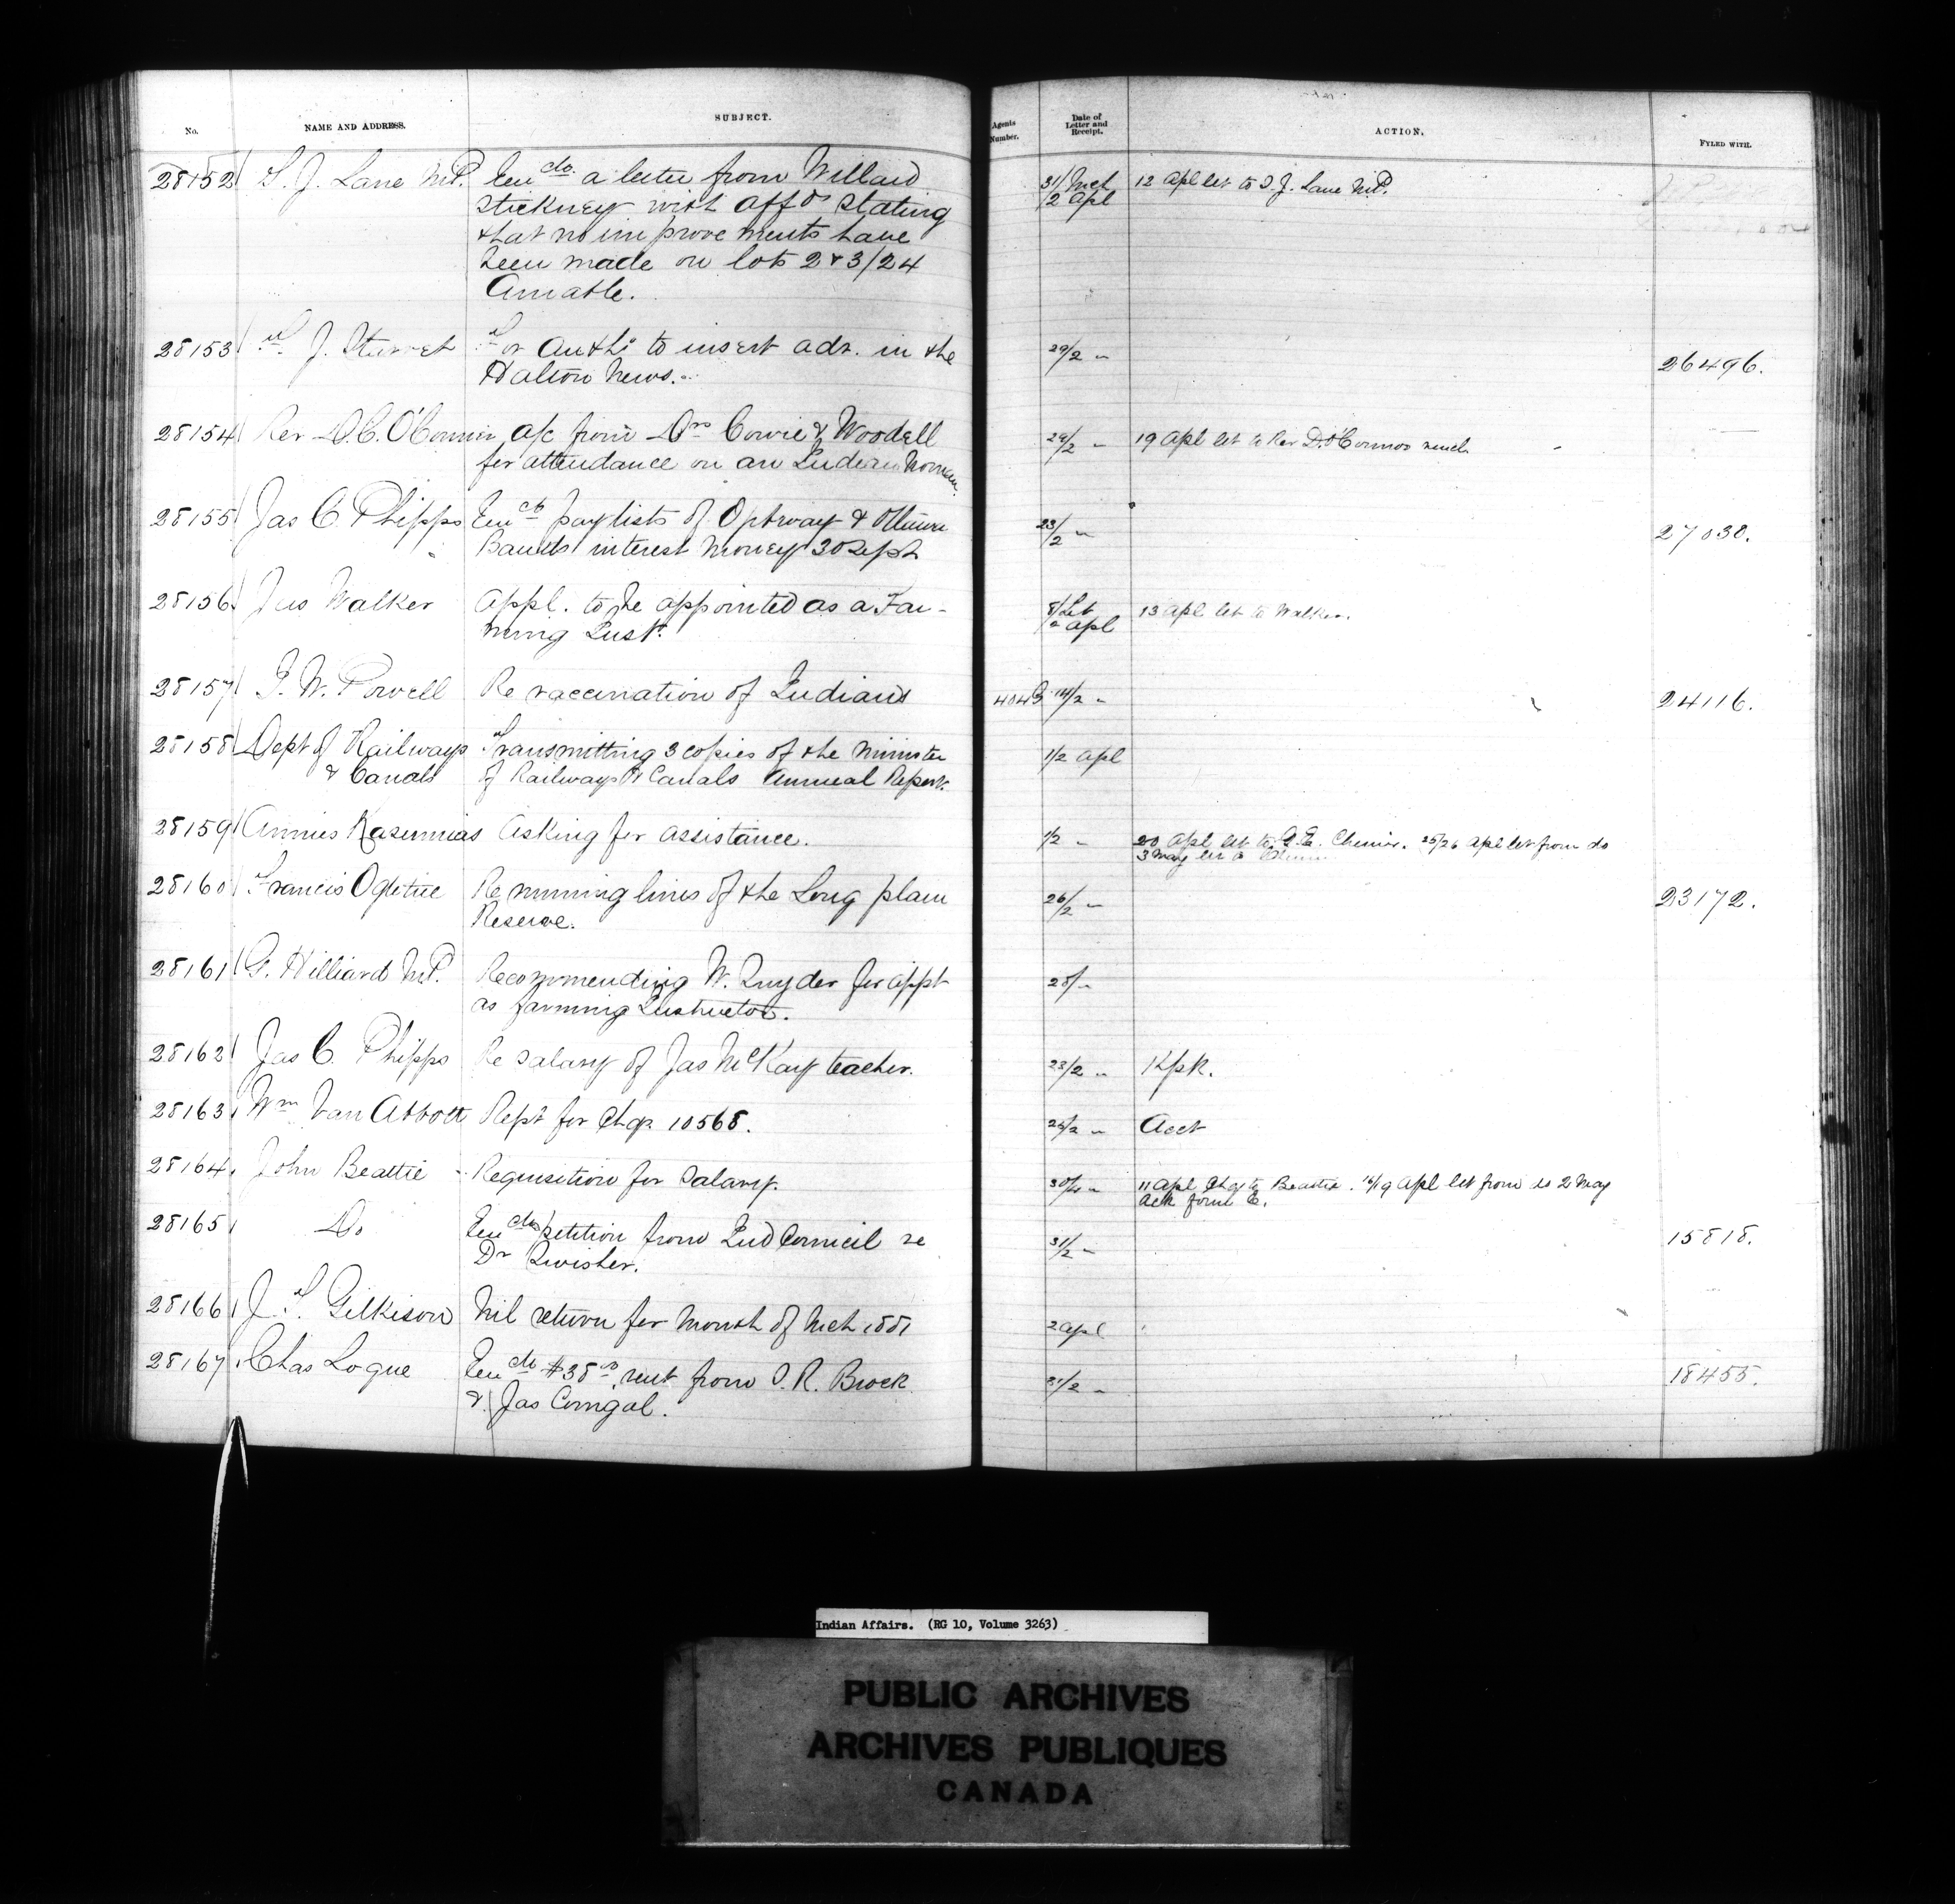 No. NAME AND ADDRESS. SUBJECT. Agents Number. Date of Letter and Receipt. ACTION. FYLED WITH.
28152 S. J. Lane M.P. Encdo a letter from Willard 31/Mch 12 Apl let to S. J. Lane M.P.
Stickney with affds stating 2 Apl
that no improvements have
been made on lots 2 & 3/24
Amable.
28153 J. Sturret For Authy to insert adv. in the 29/2 " 26496.
Halton News.
28154 Rev D.C. O'Connor a/c from Drs Cowie & Woodell 29/2 " 19 Apl let to Rev D. O'Connor
for attendance on an Indian Woman.
28155 Jas C. Phipps Encg paylists of & Ottawa 23/2 " 27030.
Bands interest money 30 Sept
28156 Jas Walker Appl. to be appointed as a Far- 8/ 13 Apl let to Walker.
ming Inst. 2 Apl
28157 I. W. Powell Re vaccination of Indians 14/2 " 24116.
28158 Dept of Railways Transmitting 3 copies of the Minister 1/2 Apl
& Canals of Railways & Canals Annual Report.
28159 Asking for assistance. 1/2 " 20 Apl let to 25/26 Apl let from do
3 May let to
28160 Francis Ogletree Re running lines of the Long plain 26/2 " 23172.
Reserve.
28161 G. Hilliard M.P. Recommending W. Snyder for appt 28/ "
as farming Instructor.
28162 Jas C. Phipps Re Salary of Jas McKay teacher. 23/2 " Kpk.
28163 Wm Van Abbott Rept for Chq. 10568. 26/2 " Acct
28164 John Beattie Requisition for Salary. 30/ " 11 Apl Chq to Beattie. 16/19 Apl let from do 2 May
Ack form
28165 Do Encdo petition from Ind Council re 31/2 " 15818.
Dr Swisher.
28166 J. T. Gilkison Nil return for Month of Mch 1881 2 Apl
28167 Chas Logue Encdo $38 rent from S. R. Brock 31/2 " 18455.
& Jas Comgal.
Indian Affairs. (RG 10, Volume 3263)
PUBLIC ARCHIVES
ARCHIVES PUBLIQUES
CANADA